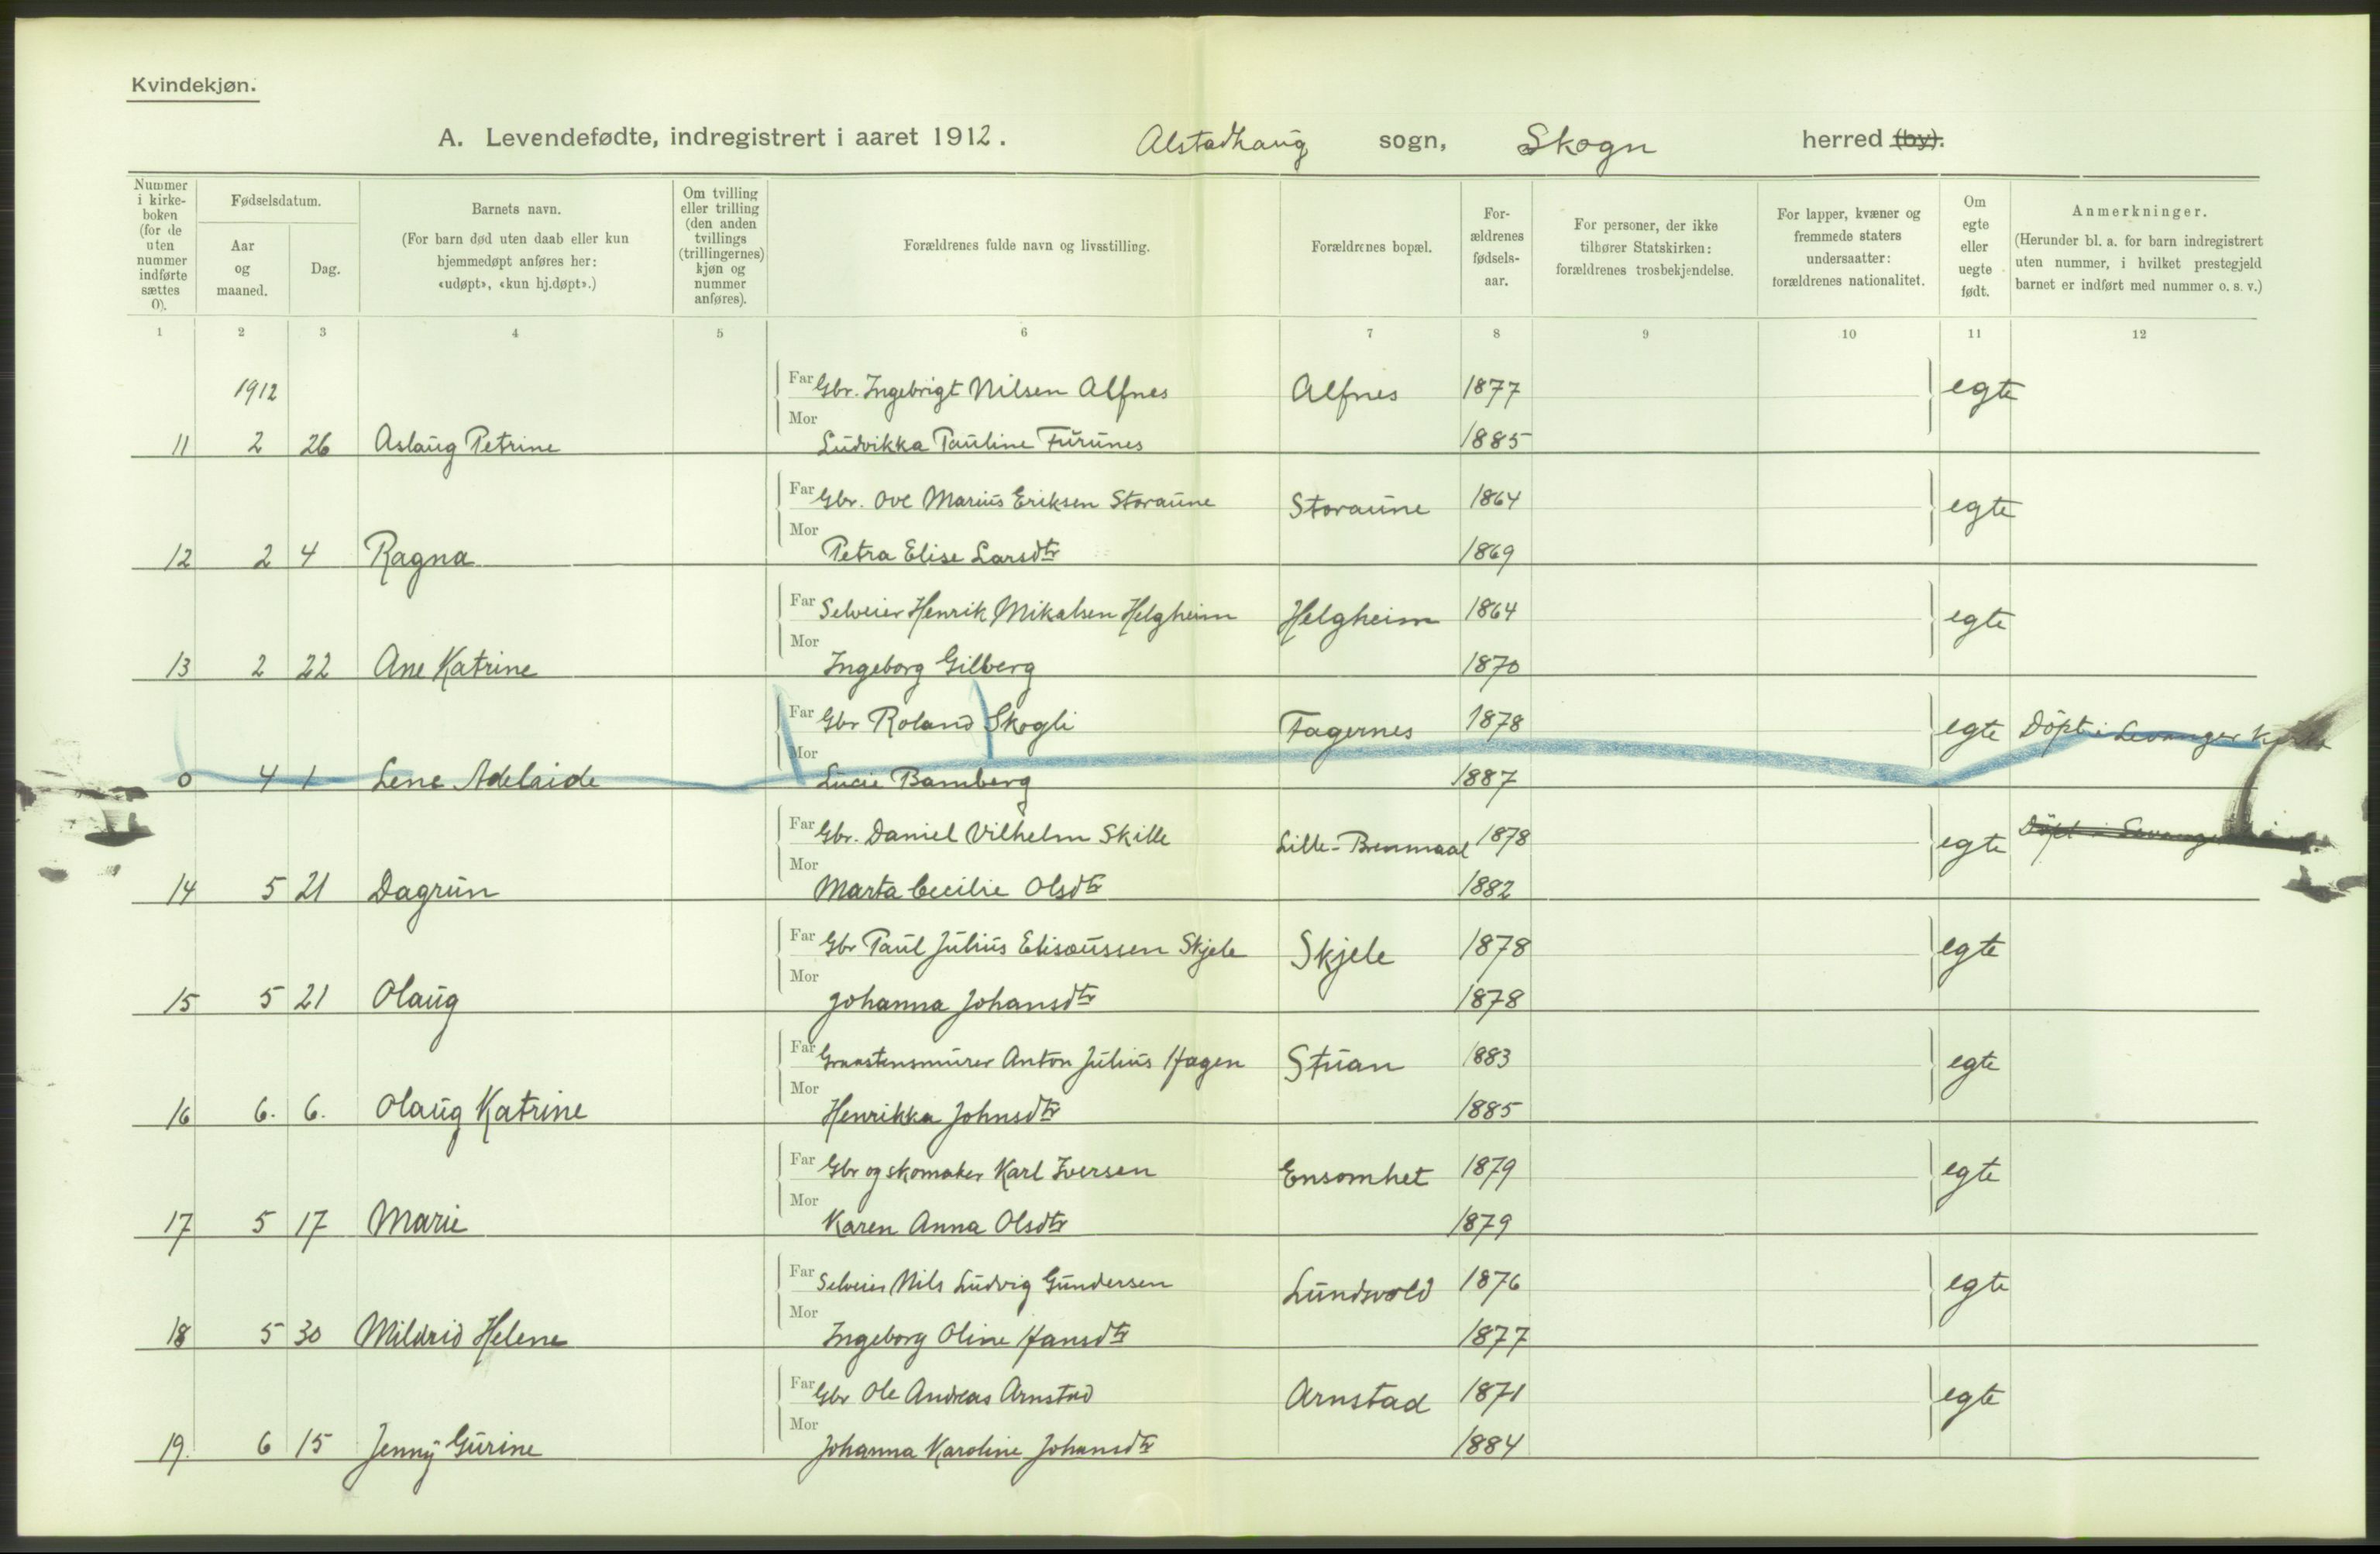 Kvindekjøn.
A. Levendefødte, indregistrert i aaret 1912. Alstadhaug sogn, Skogn herred (by).
Nummer i kirke-boken (for de uten nummer indførte sættes 0).
Fødselsdatum.
Aar og maaned.
Dag.
Barnets navn.
(For barn død uten daab eller kun hjemmedøpt anføres her: «udøpt», «kun hj.døpt».)
Om tvilling eller trilling (den anden tvillings (trillingernes) kjøn og nummer anføres).
Forældrenes fulde navn og livsstilling.
Forældrenes bopæl.
For-ældrenes fødsels-aar.
For personer, der ikke tilhører Statskirken: forældrenes trosbekjendelse.
For lapper, kvæner og fremmede staters undersaatter: forældrenes nationalitet.
Om egte eller uegte født.
Anmerkninger.
(Herunder bl. a. for barn indregistrert uten nummer, i hvilket prestegjeld barnet er indført med nummer o. s. v.)
1 2 3 4 5 6 7 8 9 10 11 12
1912 Far Gbr. Ingebrigt Nilsen Alfnes Alfnes 1877 egte
11 2 26 Aslaug Petrine Mor Ludvikka Pauline Furunes 1885
Far Gbr. Ove Marius Eriksen Storaune Storaune 1864 egte
12 2 4 Ragna Mor Petra Elise Larsdtr 1869
Far Selveier Henrik Mikalsen Helgheim Helgheim 1864 egte
13 2 22 Ane Katrine Mor Ingeborg Gilberg 1870
Far Gbr Roland Skogli Fagernes 1878 egte Döpt i Levanger
0 4 1 Lene Adelaide Mor Lucie Bamberg 1887
Far Gbr. Daniel Vilhelm Skille Lille-Brenmaal 1878 egte Döpt i
14 5 21 Dagrun Mor Marta Cecilie Olsdtr 1882
Far Gbr Paul Julius Elisæussen Skjele Skjele 1878 egte
15 5 21 Olaug Mor Johanna Johansdtr 1878
Far Graastensmurer Anton Julius Hagen Stuan 1883 egte
16 6. 6. Olaug Katrine Mor Henrikka Johnsdtr 1885
Far Gbr og skomaker Karl Iversen Ensomhet 1879 egte
17 5 17 Marie Mor Karen Anna Olsdtr 1879
Far Selveier Nils Ludvig Gundersen Lundsvold 1876 egte
18 5 30 Mildrid Helene Mor Ingeborg Oline Hansdtr 1877
Far Gbr Ole Andreas Arnstad Arnstad 1871 egte
19. 6 15 Jenny Gurine Mor Johanna Karoline Johansdtr 1884